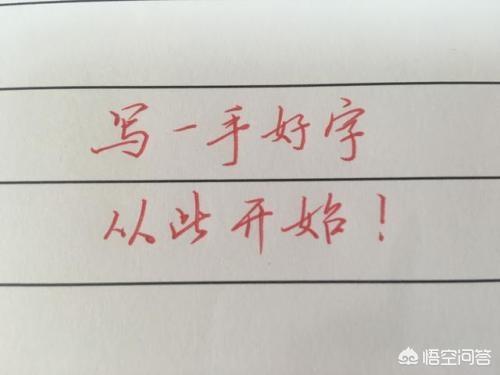 写一手好字
从此开始！
悟空问答